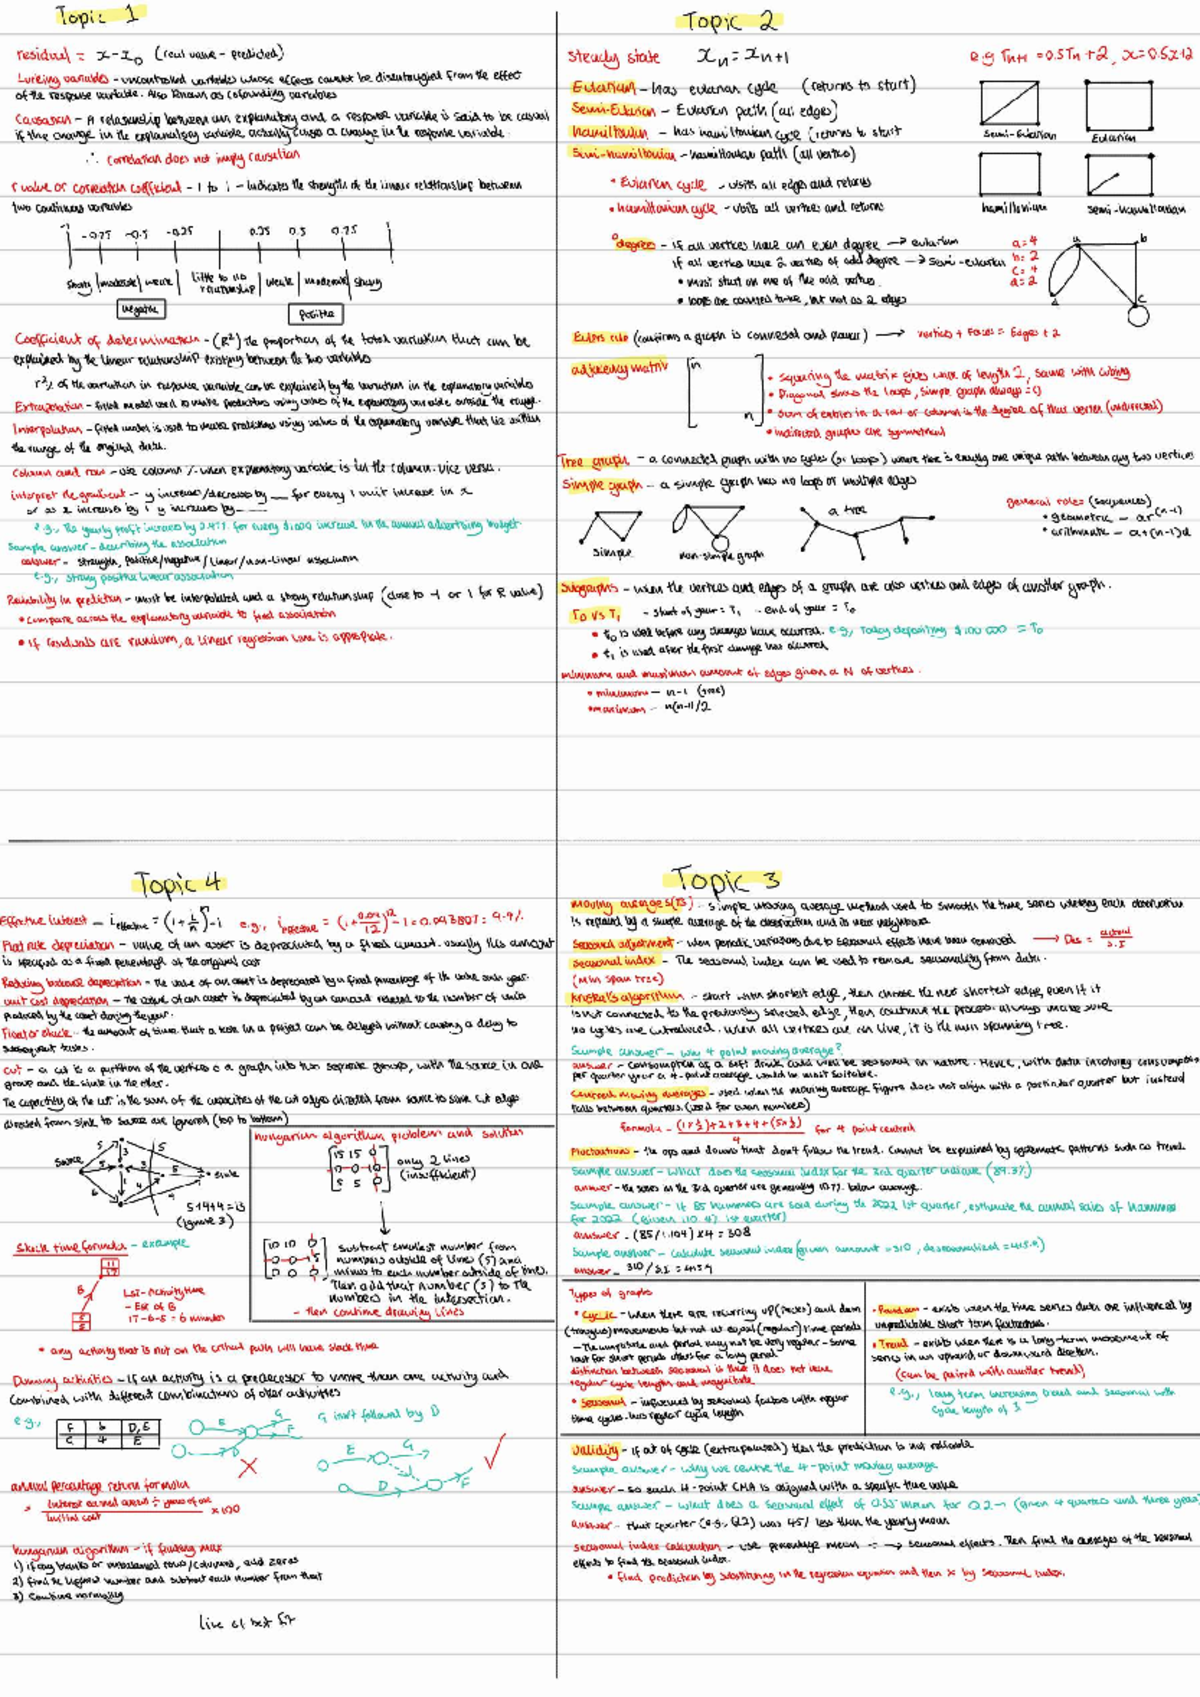 Topic 1
residual = x - x₀ (real value - predicted)
Lurking variables - uncontrolled variables whose effects cannot be disentangled from the effect
of the response variable. Also known as cofounding variables
Causation - A relationship between an explanatory and a response variable is said to be causal
if the change in the explanatory variable actually causes a change in the response variable.
∴ correlation does not imply causation
r value or correlation coefficient - 1 to 1 - indicates the strength of the linear relationship between
two continuous variables
-1 -0.75 -0.5 -0.25 0.25 0.5 0.75 1
strong moderate weak little to no relationship weak moderate strong
negative positive
Coefficient of determination - (R²) the proportion of the total variation that can be
explained by the linear relationship existing between the two variables
r²% of the variation in response variable can be explained by the variation in the explanatory variables
Extrapolation - fitted model used to make predictions using values of the explanatory variable outside the range.
Interpolation - fitted model is used to make predictions using values of the explanatory variable that lie within
the range of the original data.
Column and row - use column % when explanatory variable is in the column. vice versa.
interpret the gradient - y increase/decrease by __ for every 1 unit increase in x
or as x increases by 1 y increases by ____
e.g., The yearly profit increases by for every $1000 increase in the annual advertising budget
Sample answer - describing the association
answer - strength, positive/negative / linear/non-linear association
e.g., strong positive linear association
Reliability in prediction - must be interpolated and a strong relationship (close to -1 or 1 for R value)
• Compare across the explanatory variable to find association
• If residuals are random, a linear regression line is appropriate.
Topic 2
Steady state xₙ = xₙ₊₁ e.g Tₙ₊₁ = 0.5Tₙ + 2, x = 0.5x + 2
Eulerian - has eulerian cycle (returns to start)
Semi-Eulerian - Eulerian path (all edges)
hamiltonian - has hamiltonian cycle (returns to start
Semi-hamiltonian - hamiltonian path (all vertices)
• Eulerian cycle - visits all edges and returns
• hamiltonian cycle - visits all vertices and returns
Semi-Eulerian Eulerian
hamiltonian semi-hamiltonian
degrees - if all vertices have an even degree → eulerian
if all vertices have 2 vertices of odd degree → semi-eulerian
• must start on one of the odd vertices.
• loops are counted twice, but not as 2 edges
a = 4
b = 2
c = 4
d = 2
a b
c
Eulers rule (confirms a graph is connected and planar) → vertices + Faces = Edges + 2
adjacency matrix
n
n
• squaring the matrix gives walk of length 2, same with cubing
• Diagonal shows the loops, simple graph always = 0
• Sum of entries in a row or column is the degree of that vertex (undirected)
• undirected graphs are symmetrical
Tree graph - a connected graph with no cycles (or loops) where there is exactly one unique path between any two vertices
Simple graph - a simple graph has no loops or multiple edges
simple non-simple graph a tree
general rules (sequences)
• geometric - ar^(n-1)
• arithmetic - a+(n-1)d
Subgraphs - when the vertices and edges of a graph are also vertices and edges of another graph.
T₀ vs T₁ - start of year = T₁ - end of year = T₀
• t₀ is used before any changes have occurred. e.g., Today depositing $100 000 = T₀
• t₁ is used after the first change has occurred
minimum and maximum amount of edges given a N of vertices.
• minimum - n-1 (tree)
• maximum - n(n-1)/2
Topic 4
Effective interest - i effective = (1+i/n)ⁿ-1 e.g., i effective = (1+0.04/12)¹² - 1 =
Flat rate depreciation - value of an asset is depreciated by a fixed amount. usually this amount
is specified as a fixed percentage of the original cost
Reducing balance depreciation - the value of an asset is depreciated by a fixed percentage of its value each year.
unit cost depreciation - the value of an asset is depreciated by an amount related to the number of units
produced by the asset during the year.
Float or slack - the amount of time that a task in a project can be delayed without causing a delay to
subsequent tasks.
cut - a cut is a partition of the vertices of a graph into two separate groups, with the source in one
group and the sink in the other.
The capacity of the cut is the sum of the capacities of the cut edges directed from source to sink cut edges
directed from sink to source are ignored (top to bottom)
Source sink
5+4+4=13
(ignore 3)
hungarian algorithm problem and solution
15 15 0
10 0 10
5 5 0
only 2 lines
(insufficient)
10 10 0
0 0 15
0 0 0
Subtract smallest number from
numbers outside of lines (5) and
minus to each number outside of lines.
Then add that number (5) to the
numbers in the intersection.
- then continue drawing lines
Slack time formula - example
B
LST - Activity time
- EST of B
17-6-5 = 6 minutes
• any activity that is not on the critical path will have slack time
Dummy activities - if an activity is a predecessor to more than one activity and
combined with different combinations of other activities
e.g.,
F 6 D, E
G 4 E
G isn't followed by D
E G F D
E G D F
annual percentage return formula
× 100
initial cost
hungarian algorithm - if finding max
1) if any blanks or unbalanced rows/columns, add zeros
2) find the highest number and subtract each number from that
3) Continue normally
line of best fit
Topic 3
moving averages - simple moving average method used to smooth the time series whereby each observation
is replaced by a simple average of the observation and its near neighbours
Seasonal adjustment - when periodic variations due to seasonal effects have been removed → Des = actual / S.I
Seasonal index - The seasonal index can be used to remove seasonality from data.
(min span tree)
Kruskal's algorithm - start with shortest edge, then choose the next shortest edge, even if it
is not connected to the previously selected edge, then continue the process. always make sure
no cycles are introduced. when all vertices are in line, it is the min spanning tree.
Sample answer - why 4 point moving average?
answer - consumption of a soft drink could well be seasonal in nature. Hence, with data involving consumption
per quarter year a 4-point average would be most suitable.
Centred moving averages - used when the moving average figure does not align with a particular quarter but instead
falls between quarters. (used for even numbers)
formula - (1×½)+2+3+4+(5×½) / 4 for 4 point centred
Fluctuations - the ups and downs that don't follow the trend. Cannot be explained by systematic patterns such as trend.
Sample answer - What does the seasonal index for the 3rd quarter indicate (89.3%)
answer - the sales in the 3rd quarter are generally 10.7% below average.
Sample answer - if 85 hammers are sold during the 2022 1st quarter, estimate the annual sales of hammers
for 2022 (given 110.4% 1st quarter)
answer - (85/1.104) × 4 = 308
Sample answer - calculate seasonal index (given amount = 310,
answer -
Types of graphs
• Cyclic - when there are recurring up (peaks) and down
(troughs) movements but not at equal (regular) time periods
- The amplitude and period may not be very regular - some
last for short periods others for a long period
distinction between seasonal is that it does not have
regular cycle length and magnitude.
• seasonal - influenced by seasonal factors with regular
time cycles. has regular cycle length
• Random - exists when the time series data are influenced by
unpredictable short term fluctuations.
• Trend - exists when there is a long-term movement of
series in an upward, or downward direction.
(can be paired with another trend)
e.g., long term increasing trend and seasonal with
cycle length of 3
validity - if out of cycle (extrapolated) then the prediction is not reliable
Sample answer - why we centre the 4-point moving average
answer - so each 4-point CMA is aligned with a specific time value
Sample answer - what does a seasonal effect of 0.55 mean for Q2 → (given 4 quarters and three years)
answer - that quarter (e.g., Q2) was 45% less than the yearly mean
seasonal index calculation - use percentage mean → seasonal effects. Then find the averages of the seasonal
effects to find the seasonal index.
• find prediction by substituting in the regression equation and then × by seasonal index.